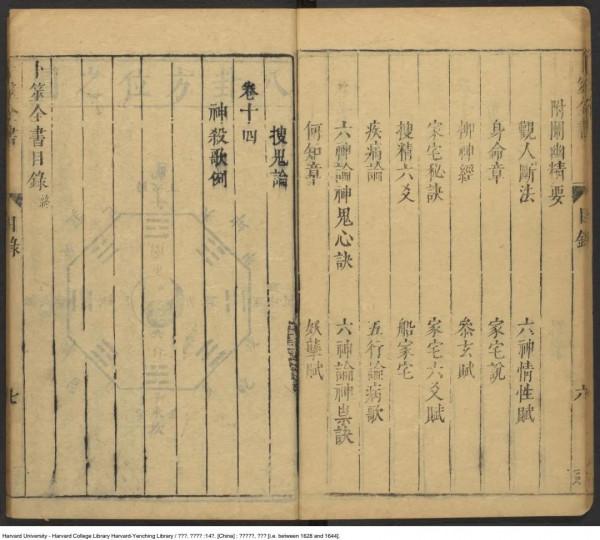 附闡幽精要
觀人斷法 六神情性賦
身命章 家宅說
柳神經 叅玄賦
家宅秘訣 家宅六爻賦
搜精六爻 船家宅
疾病論 五行論病歌
六神論神鬼心訣 六神論神祟訣
何知章 妖孽賦
目錄
六
搜鬼論
卷十四
神殺歌例
卜筮全書目錄 終
目錄
七
Harvard University - Harvard College Library Harvard-Yenching Library / ???. ???? :14?. [China] : ?????, ??? [i.e. between 1628 and 1644].